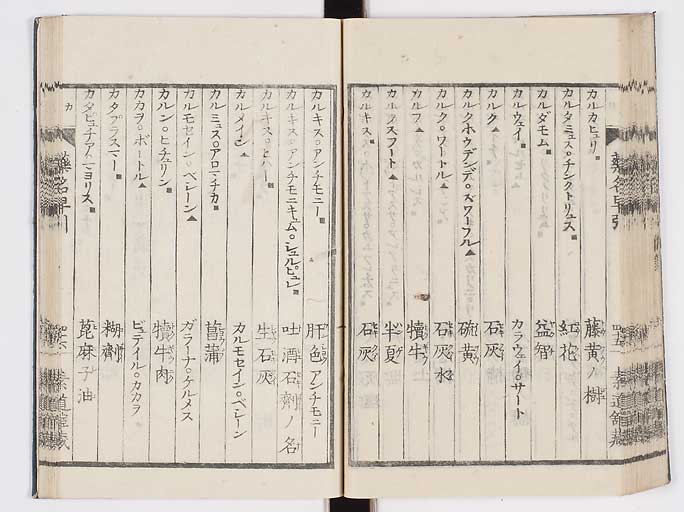 カルカヒュリ■ 藤黄ノ樹
カルタミュス。チンクトリュス■ 紅花
カルダモム■ 益智
カルウェイ■ カラウェイ。サート
カルク▲ 石灰
カルクホウデンデ。ズワーフル▲ 硫黄
カルク。ワートル▲ 石灰水
カルフ▲ 犢牛
カルフスフート▲ 半夏
カルキス■ 石灰
カルキス。アンチモニー■ 肝色アンチモニー
カルキス。アンチモニキュム。シュルピュレ■ 吐酒石劑ノ名
カルキス。ヒハー■ 生石灰
カルメイン▲ カルモセイン。ベレーン
カルミュス。アロマチカ■ 菖蒲
カルモセイン。ベレーン▲ ガラーナ。ケルメス
カルン。ヒチュリン■ 犢牛肉
カカヲ。ボートル▲ ビュテイル。カカラ
カタプラスマー■ 糊劑
カタピュチアマヨリス■ 蓖麻子油
カ
藥名早引
四十六